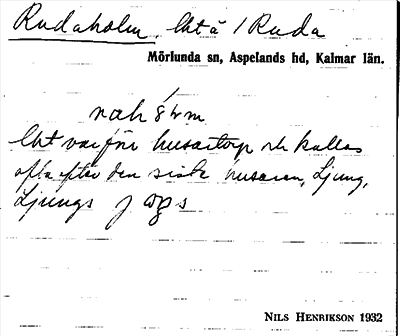 Rudaholm, lht å 1 Ruda
Mörlunda sn, Aspelands hd, Kalmar län.
lht var förr husartorp och kallas
ofta efter den siste husaren, Ljung,
Ljungs
NILS HENRIKSON 1932